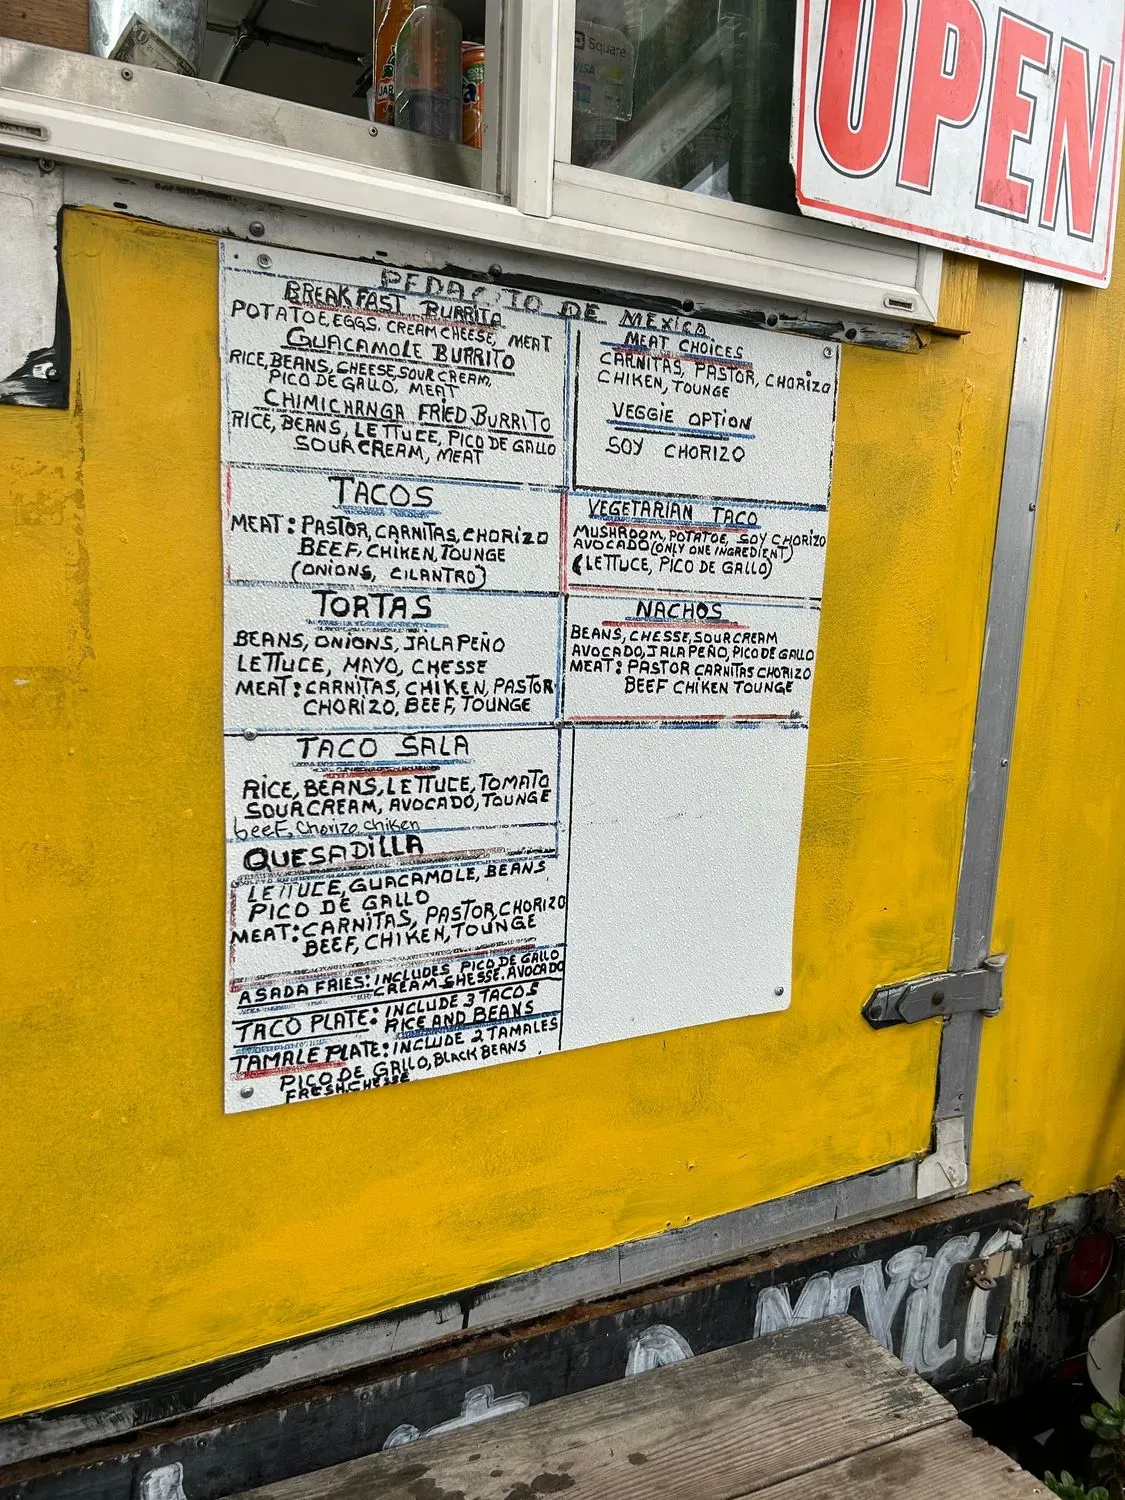 Square
VISA
JAR
OPEN
PEDACITO DE MEXICO
BREAKFAST BURRITA
POTATOE EGGS, CREAM CHEESE, MEAT
GUACAMOLE BURRITO
RICE, BEANS, CHEESE, SOUR CREAM,
PICO DE GALLO, MEAT
CHIMICHANGA FRIED BURRITO
RICE, BEANS, LETTUCE, PICO DE GALLO
SOUR CREAM, MEAT
MEAT CHOICES
CARNITAS, PASTOR, CHORIZO
CHIKEN, TOUNGE
VEGGIE OPTION
SOY CHORIZO
TACOS
MEAT: PASTOR, CARNITAS, CHORIZO
BEEF, CHIKEN, TOUNGE
(ONIONS, CILANTRO)
VEGETARIAN TACO
MUSHROOM, POTATOE, SOY CHORIZO
AVOCADO (ONLY ONE INGREDIENT)
(LETTUCE, PICO DE GALLO)
TORTAS
BEANS, ONIONS, JALAPEÑO
LETTUCE, MAYO, CHESSE
MEAT: CARNITAS, CHIKEN, PASTOR
CHORIZO, BEEF, TOUNGE
NACHOS
BEANS, CHESSE, SOUR CREAM
AVOCADO, JALAPEÑO, PICO DE GALLO
MEAT: PASTOR CARNITAS CHORIZO
BEEF CHIKEN TOUNGE
TACO SALA
RICE, BEANS, LETTUCE, TOMATO
SOUR CREAM, AVOCADO, TOUNGE
beeF, Chorizo chiken
QUESADILLA
LETTUCE, GUACAMOLE, BEANS
PICO DE GALLO
MEAT: CARNITAS, PASTOR, CHORIZO
BEEF, CHIKEN, TOUNGE
ASADA FRIES: INCLUDES, PICO DE GALLO
CREAM CHESSE, AVOCADO
TACO PLATE: INCLUDE 3 TACOS
RICE AND BEANS
TAMALE PLATE: INCLUDE 2 TAMALES
PICO DE GALLO, BLACK BEANS
FRESH CHESSE
MEXICO